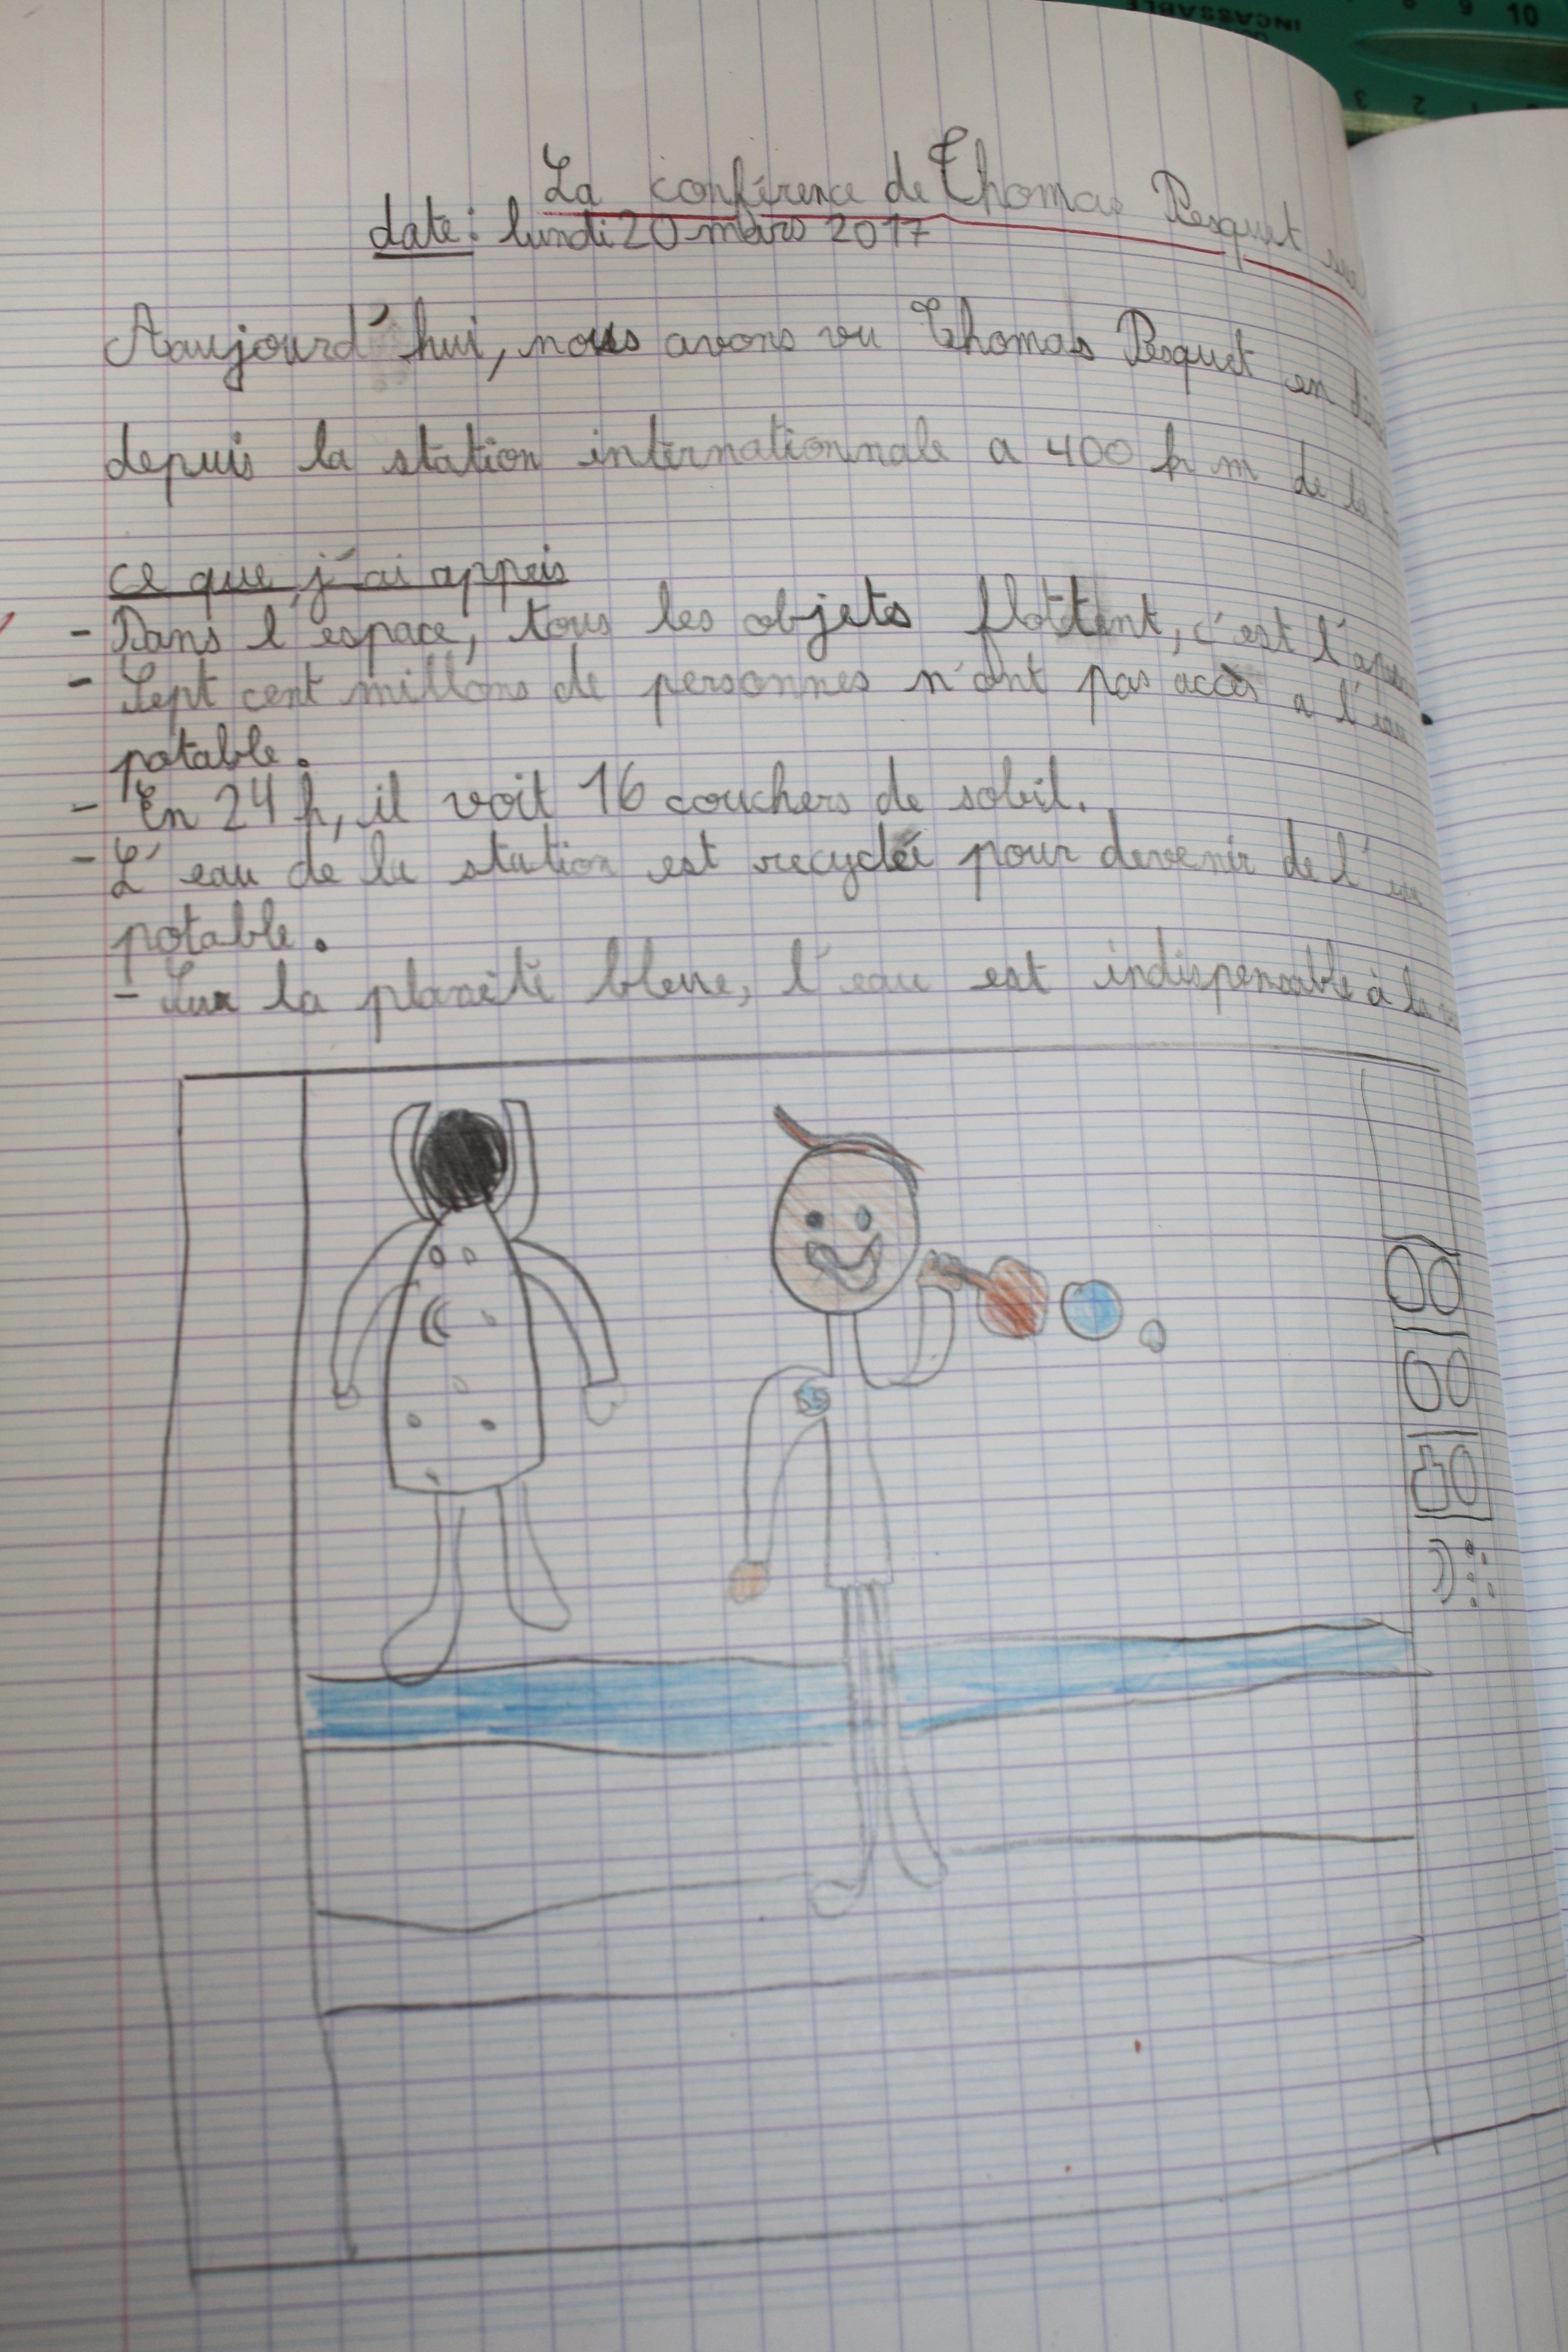 La conférence de Thomas Pesquet
date: lundi 20 mars 2017
Aaujourd'hui, nous avons vu Thomas Pesquet en
depuis la station internationnale a 400 km de la
ce que j'ai appris
- Dans l'espace, tous les objets flottent, c'est
- Sept cent millons de personnes n'ont pas accès a l'eau
potable.
- En 24 h, il voit 16 couchers de soleil.
- L'eau de la station est recyclée pour devenir de l'eau
potable.
- Sur la planète bleue, l'eau est indispensable à la
INCASSABLE
10
9
8
3
2
1